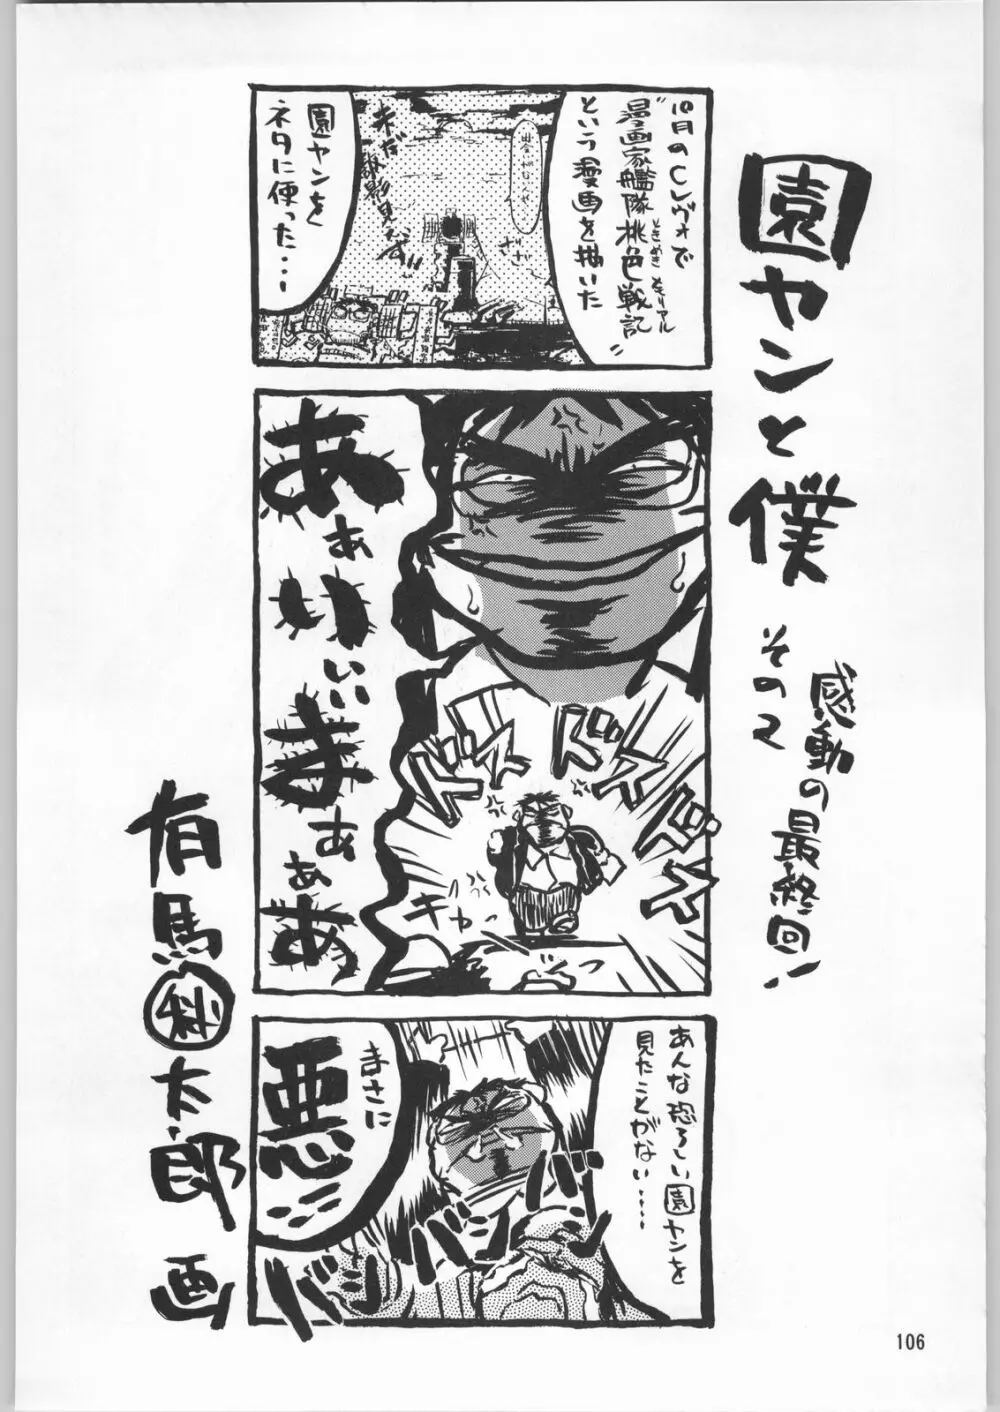 園ヤンと僕
その2
感動の最終回!
10月のCレヴォで
"漫画家艦隊桃色戦記"
ときめき メモリアル
という漫画を描いた
園ヤンを
ネタに使った…
ざざ
あぁいぃまぁぁあ
ドスドスドス
キャー
あんな恐ろしい園ヤンを
見たことがない……
まさに
悪!!
バンバンバン
有馬㊙太郎 画
106